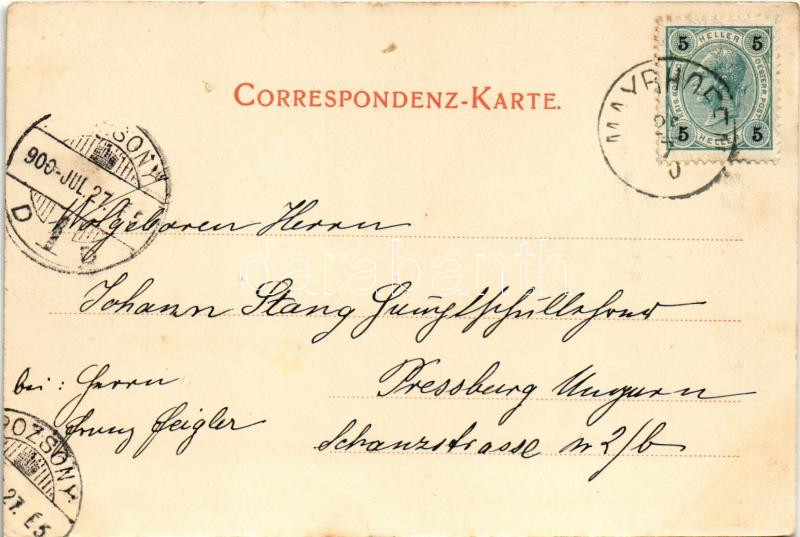 5 HELLER 5
5 HELLER 5
CORRESPONDENZ-KARTE.
MAYRHOFEN
POZSONY
900-JUL.27.
D 1
Wolgeboren Herrn
Johann Stang Hauptschullehrer
bei: Herrn
Franz Zeigler
Pressburg Ungarn
Schanzstrasse nr 2/b
POZSONY
27. E5
darabanth